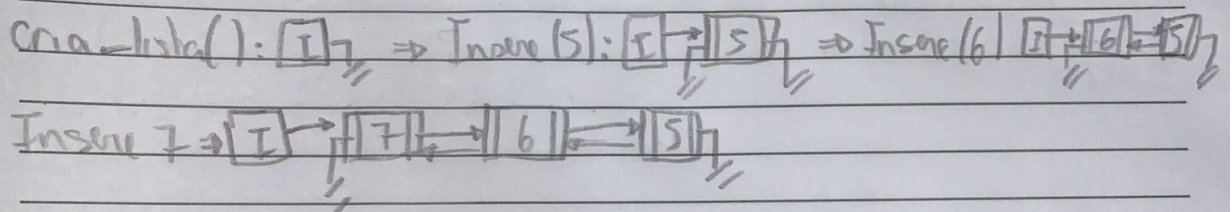 cria_lista(): I ⇒ Insere (5): I → 5 ⇒ Insere (6) I → 6 5
Insere 7 ⇒ I → 7 6 5